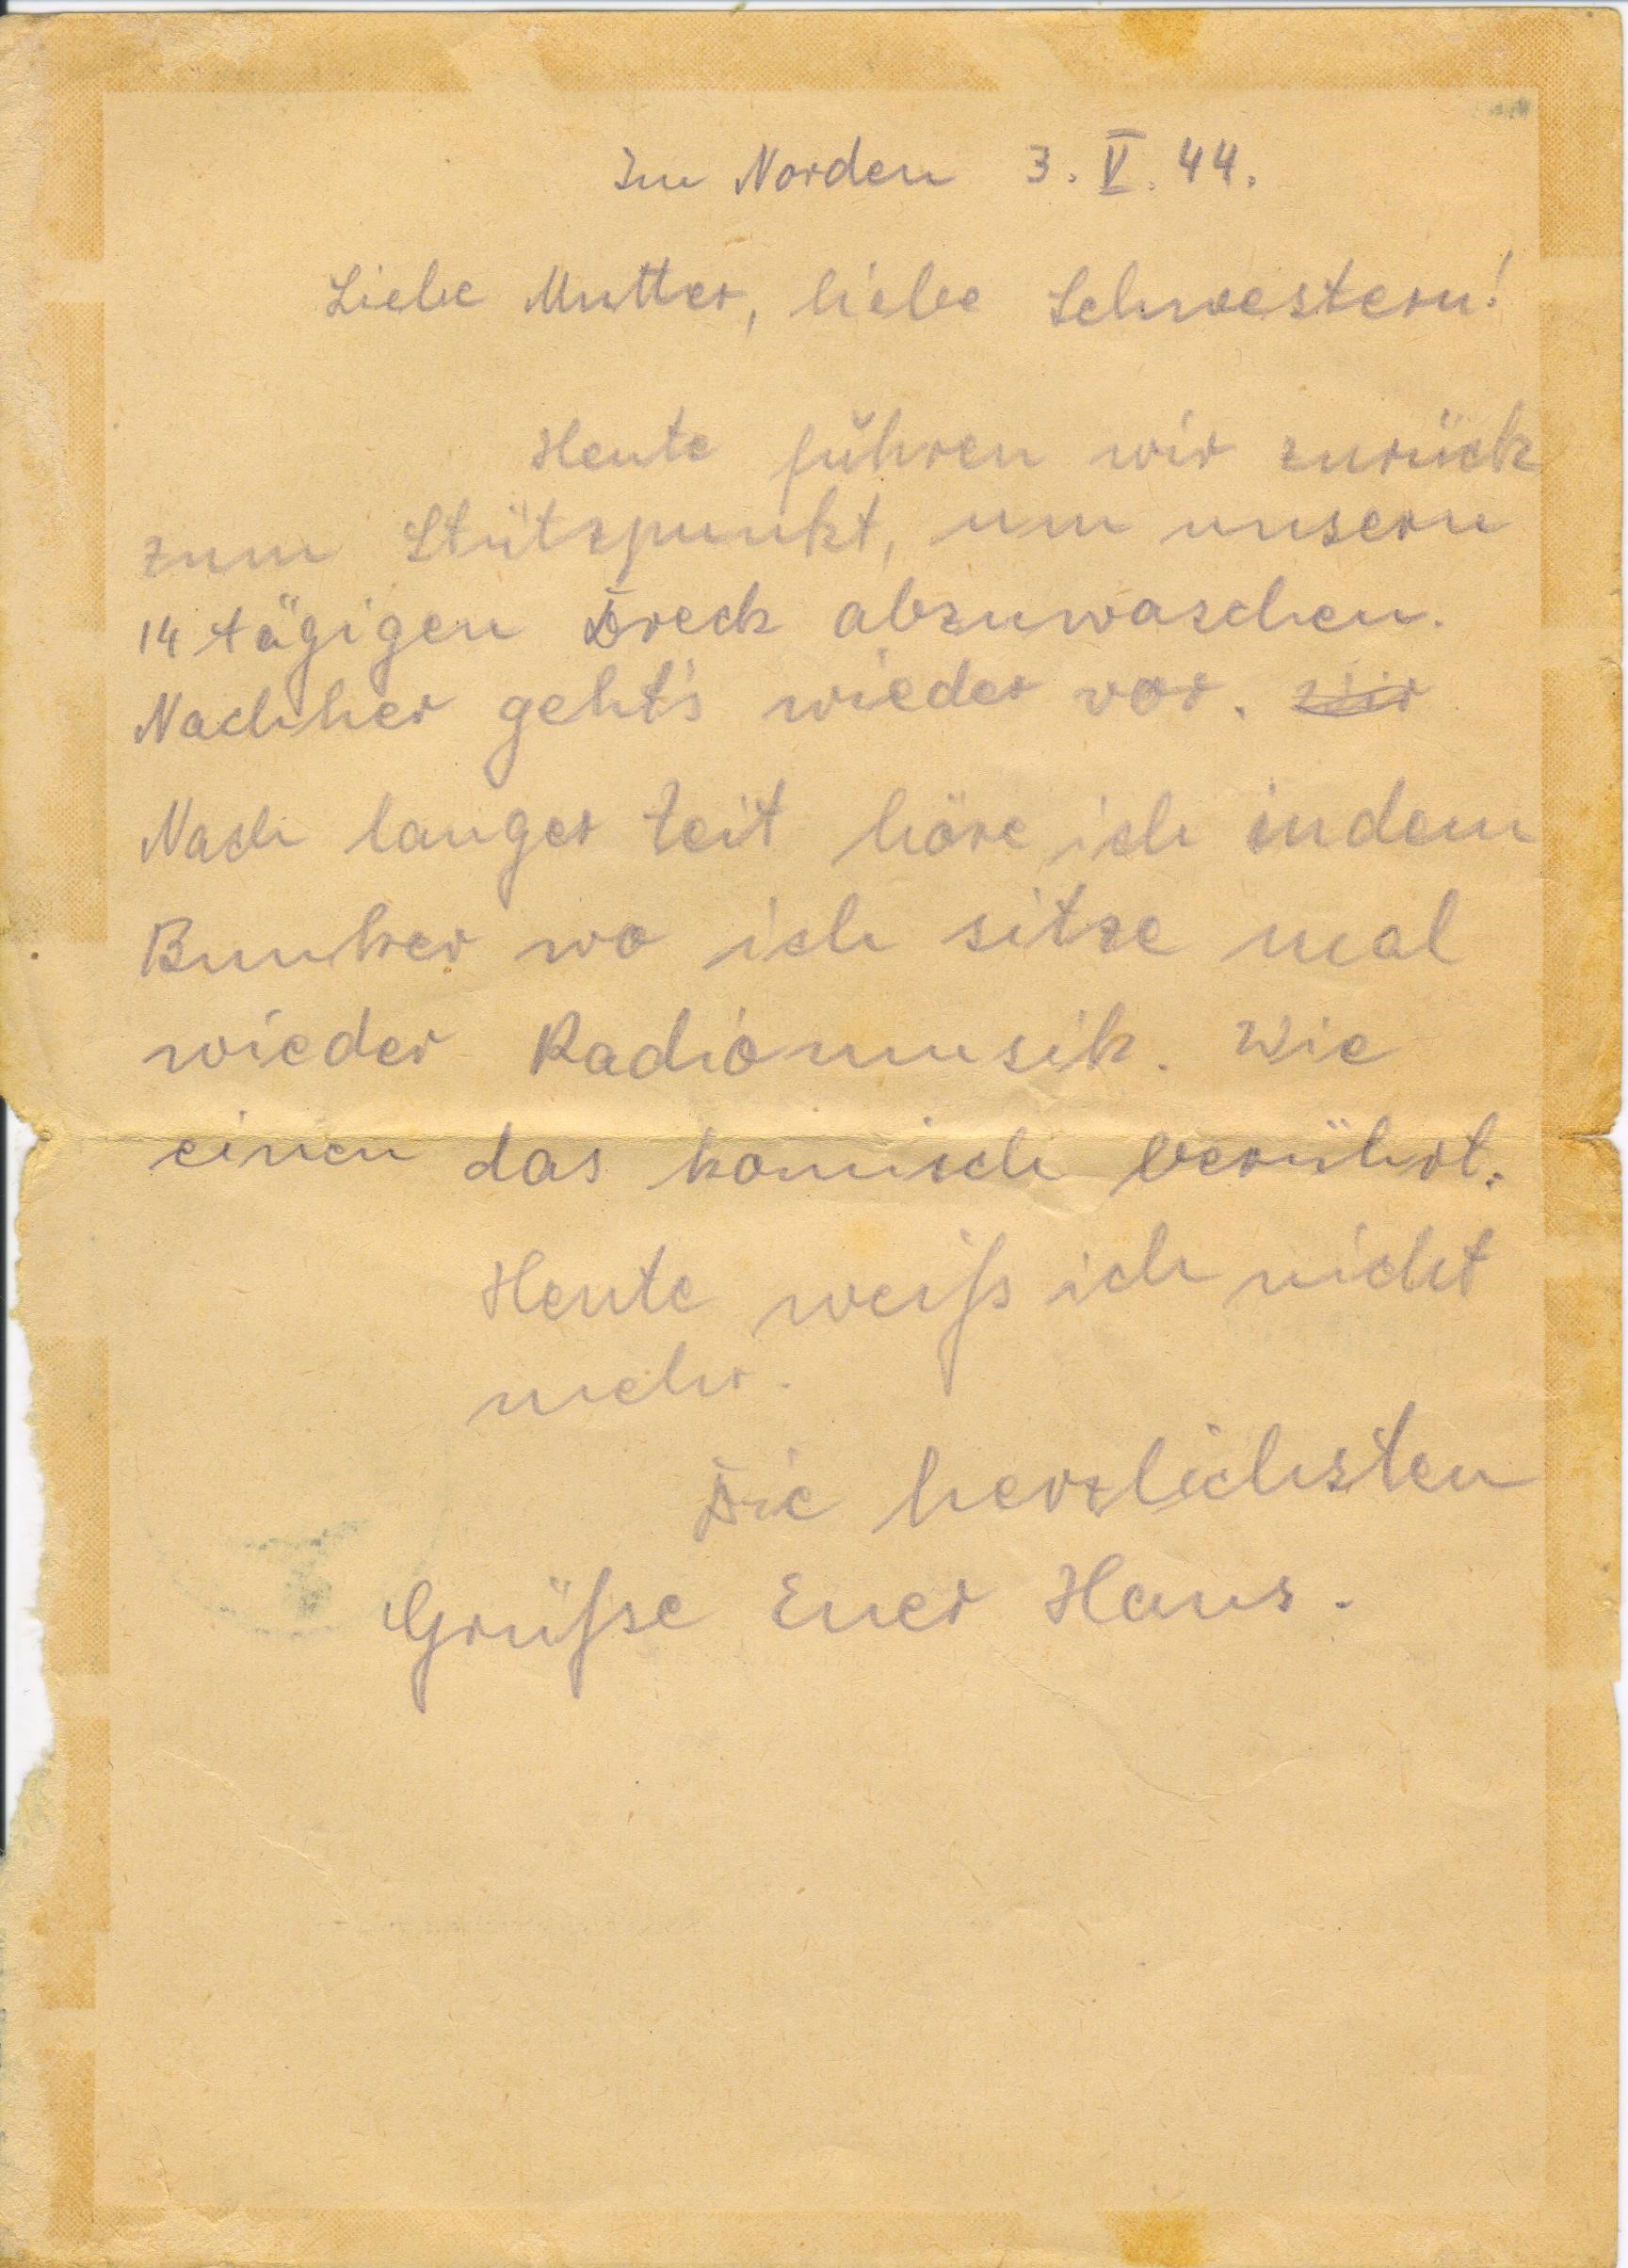 Im Norden 3. V. 44.
Liebe Mutter, liebe Schwestern!
Heute führen wir zurück
zum Stützpunkt, um unsern
14 tägigen Dreck abzuwaschen.
Nachher geht's wieder vor.
Nach langer Zeit höre ich indem
Bunker wo ich sitze mal
wieder Radiomusik. Wie
einen das komisch berührt.
Heute weiß ich nicht
mehr.
Die herzlichsten
Grüße Euer Hans.